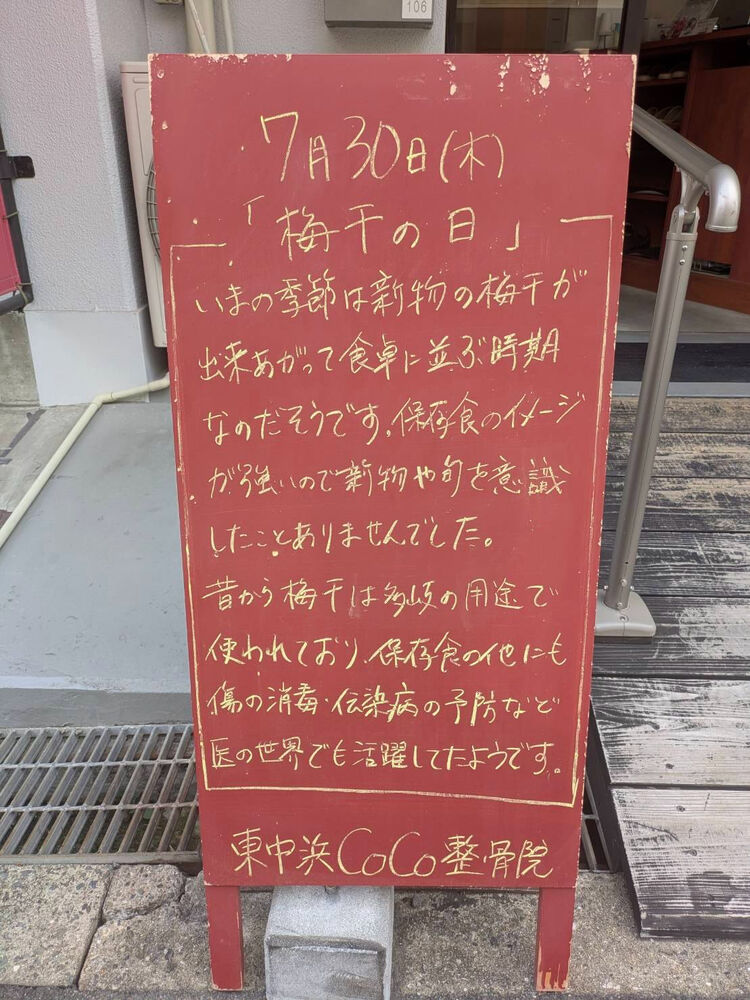 106
7月30日(木)
「梅干の日」
いまの季節は新物の梅干が
出来あがって食卓に並ぶ時期
なのだそうです。保存食のイメージ
が強いので新物や旬を意識
したことありませんでした。
昔から梅干は多岐の用途で
使われており、保存食の他にも
傷の消毒・伝染病の予防など
医の世界でも活躍してたようです。
東中浜CoCo整骨院